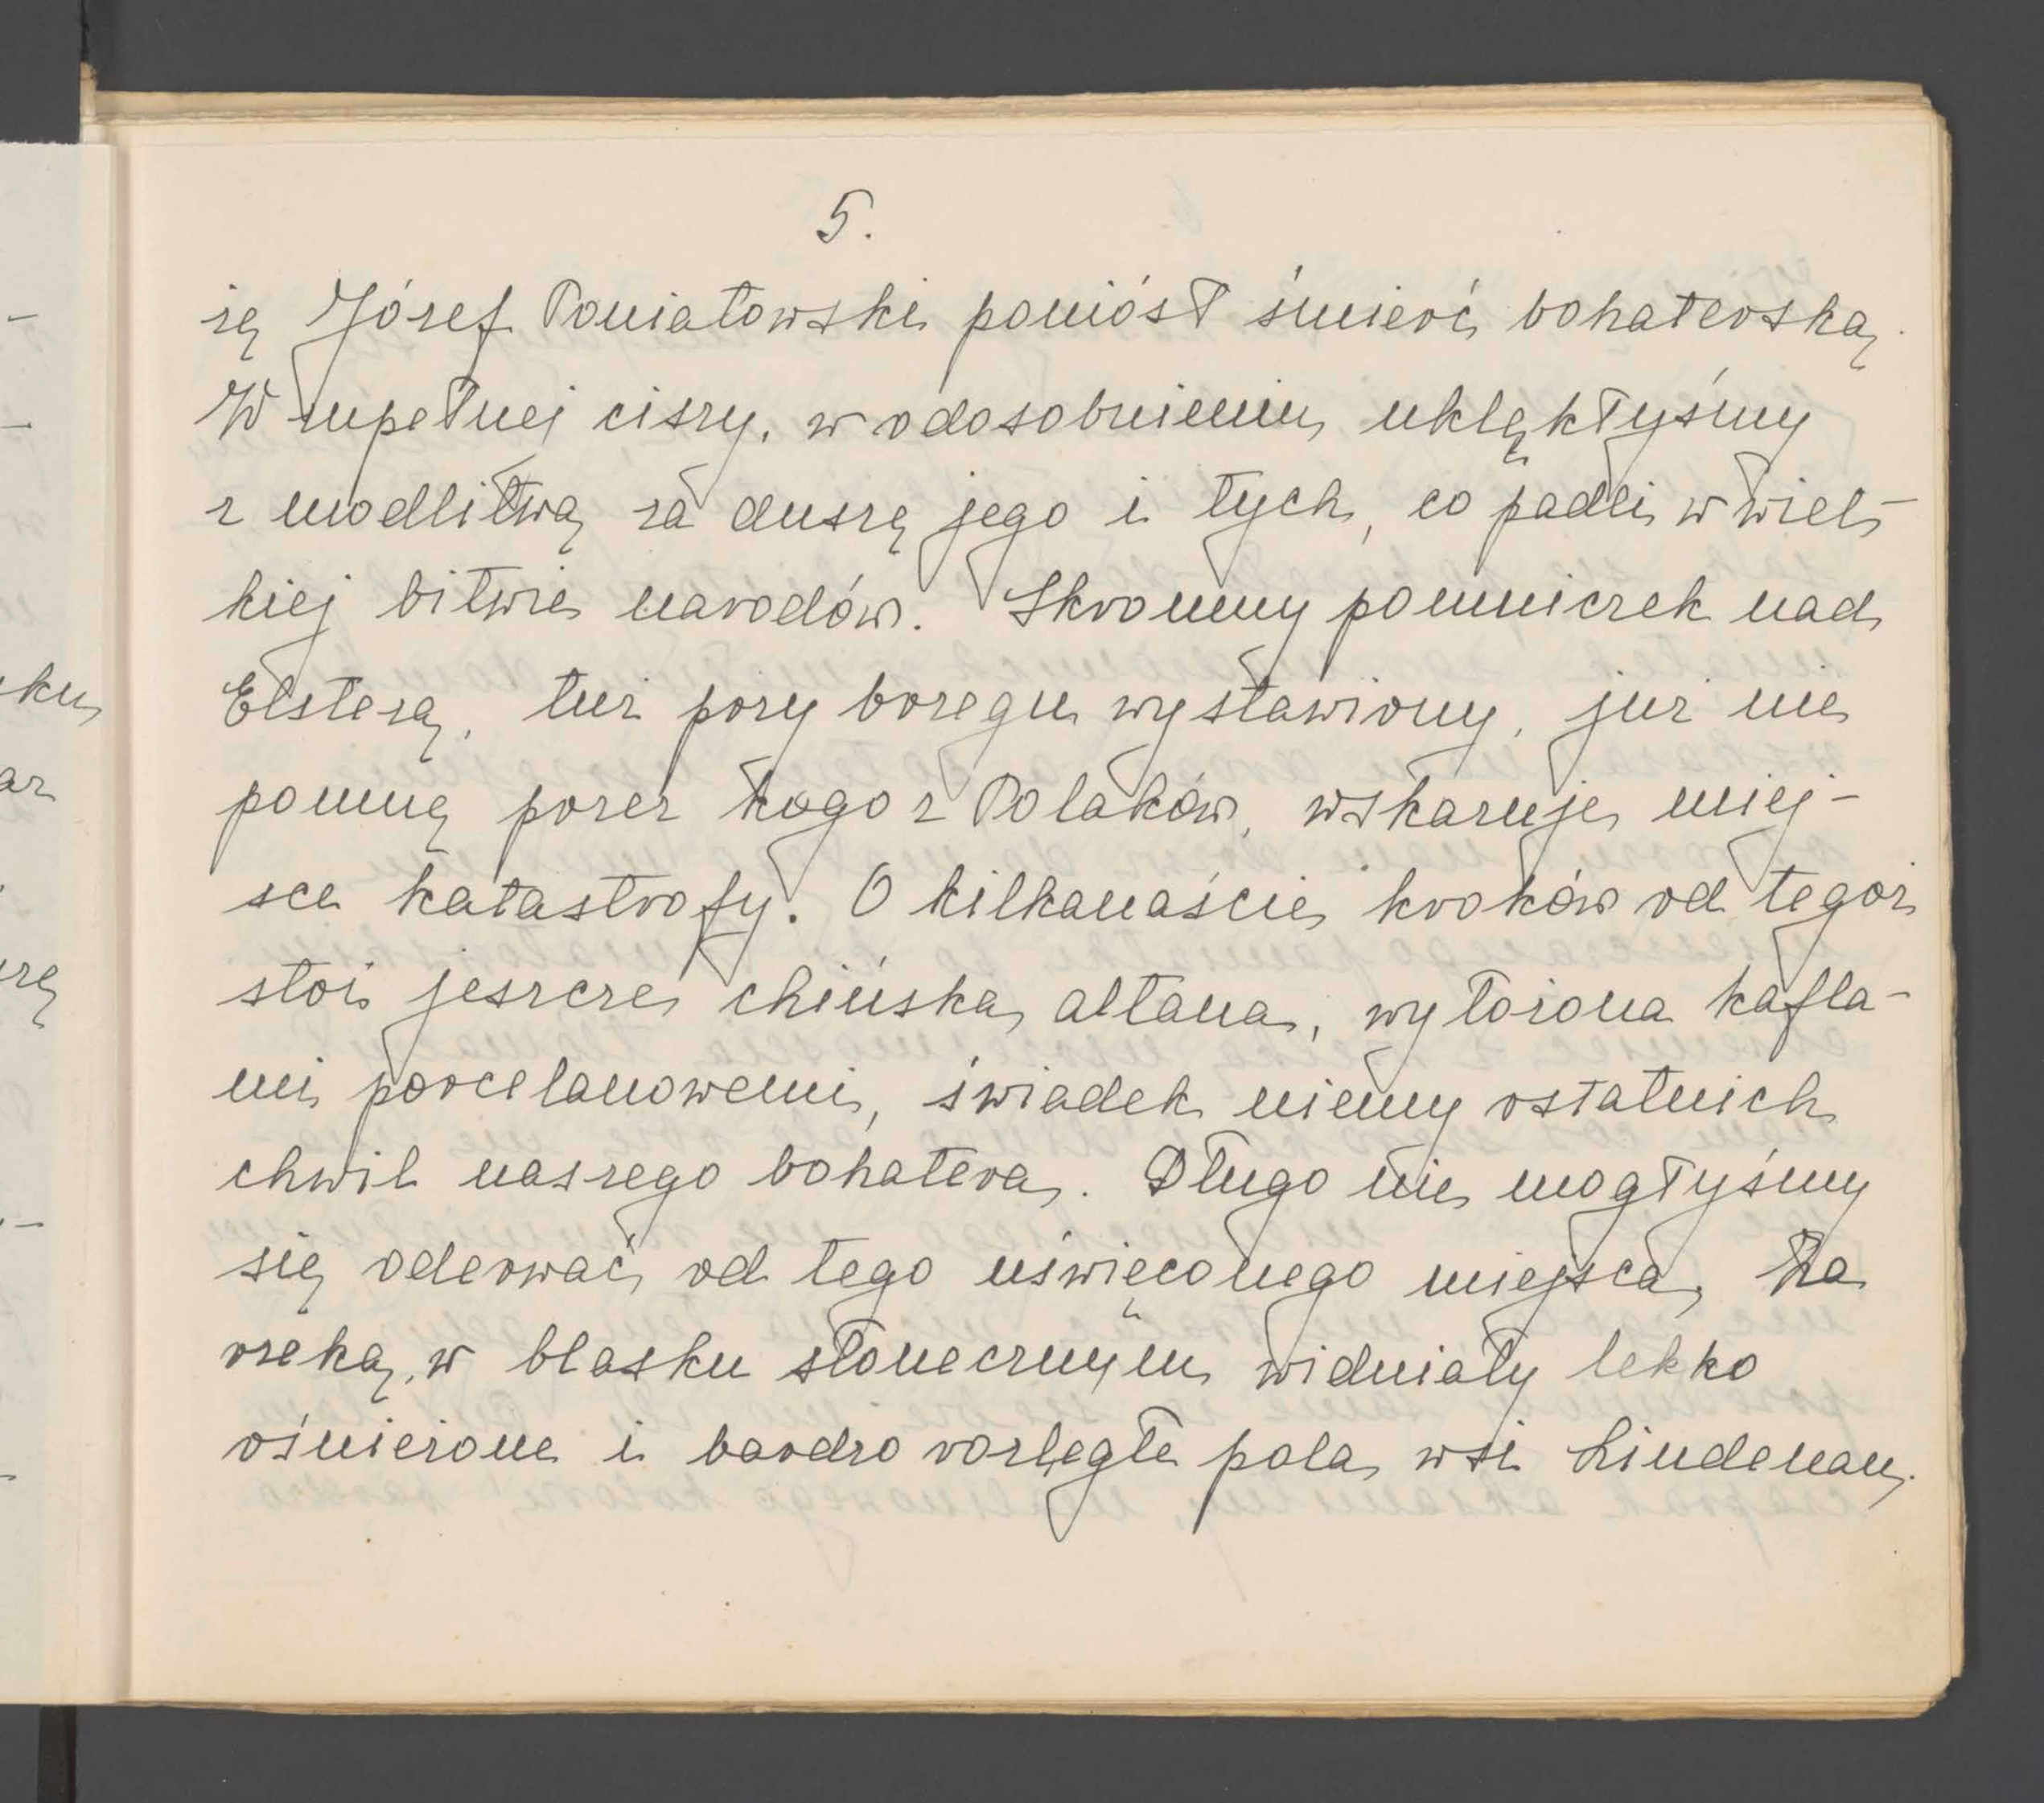 5.
żę Józef Poniatowski poniósł śmierć bohaterską.
W zupełnej ciszy, w odosobnieniu uklękłyśmy
z modlitwą za duszę jego i tych, co padli w wiel-
kiej bitwie narodów. Skromny pomniczek nad
Elsterą, tuż przy brzegu wystawiony, już nie
pomnę przez kogo z Polaków, wskazuje miej-
sce katastrofy. O kilkanaście kroków od tegoż
stoi jeszcze chińska altana, wyłożona kafla-
mi porcelanowemi, świadek niemy ostatnich
chwil naszego bohatera. Długo nie mogłyśmy
się oderwać od tego uświęconego miejsca. Za
rzeką, w blasku słonecznym widniały lekko
ośnieżone i bardzo rozległe pola wsi Lindenau.
ku
arz
rzę